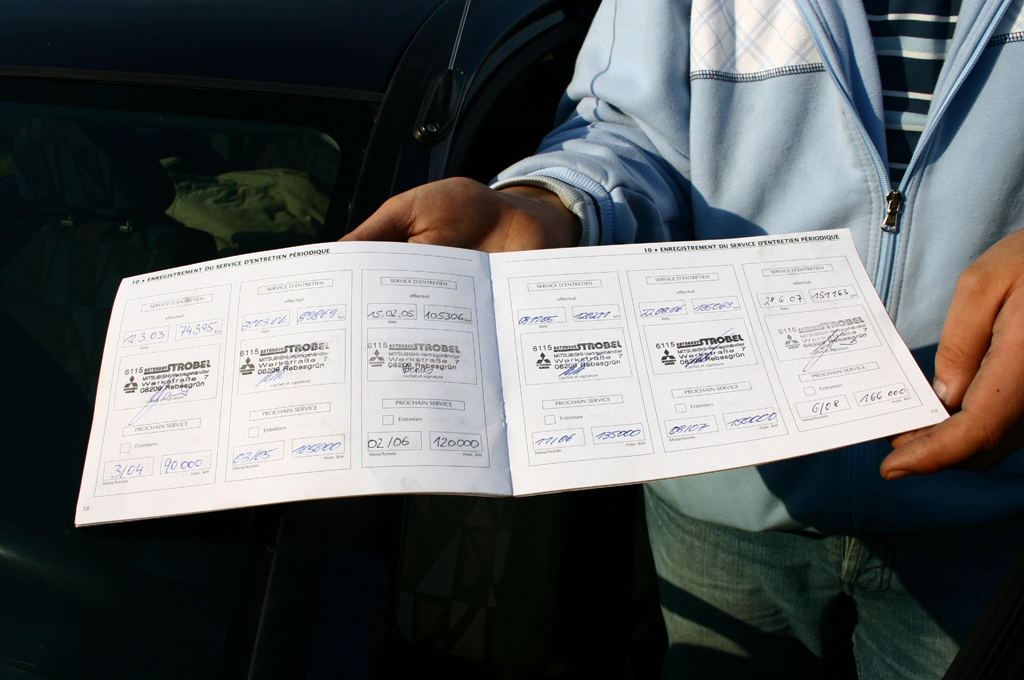 10 • ENREGISTREMENT DU SERVICE D'ENTRETIEN PÉRIODIQUE
SERVICE D'ENTRETIEN
effectué
12.3.03 74395 km
date
6115 AUTOHAUS STROBEL
MITSUBISHI-Vertragshändler
Werkstraße 7
08209 Rebesgrün
PROCHAIN SERVICE
Entretien
3/04 90000
Mois/Année max. km
18
SERVICE D'ENTRETIEN
effectué
km
date
6115 AUTOHAUS STROBEL
MITSUBISHI-Vertragshändler
Werkstraße 7
08209 Rebesgrün
cachet et signature
PROCHAIN SERVICE
Entretien
03/05 105000
Mois/Année max. km
SERVICE D'ENTRETIEN
effectué
15.02.05 105306 km
date
6115 AUTOHAUS STROBEL
MITSUBISHI-Vertragshändler
Werkstraße 7
08209 Rebesgrün
cachet et signature
PROCHAIN SERVICE
Entretien
02/06 120000
Mois/Année max. km
10 • ENREGISTREMENT DU SERVICE D'ENTRETIEN PÉRIODIQUE
SERVICE D'ENTRETIEN
effectué
km
date
6115 AUTOHAUS STROBEL
MITSUBISHI-Vertragshändler
Werkstraße 7
08209 Rebesgrün
cachet et signature
PROCHAIN SERVICE
Entretien
11/06 135000
Mois/Année max. km
SERVICE D'ENTRETIEN
effectué
22.08.06 km
date
6115 AUTOHAUS STROBEL
MITSUBISHI-Vertragshändler
Werkstraße 7
08209 Rebesgrün
cachet et signature
PROCHAIN SERVICE
Entretien
08/07 150000
Mois/Année max. km
SERVICE D'ENTRETIEN
effectué
28.6.07 151163 km
date
6115 AUTOHAUS STROBEL
MITSUBISHI-Vertragshändler
Werkstraße 7
08209 Rebesgrün
cachet et signature
PROCHAIN SERVICE
Entretien
6/08 166000
Mois/Année max. km
19